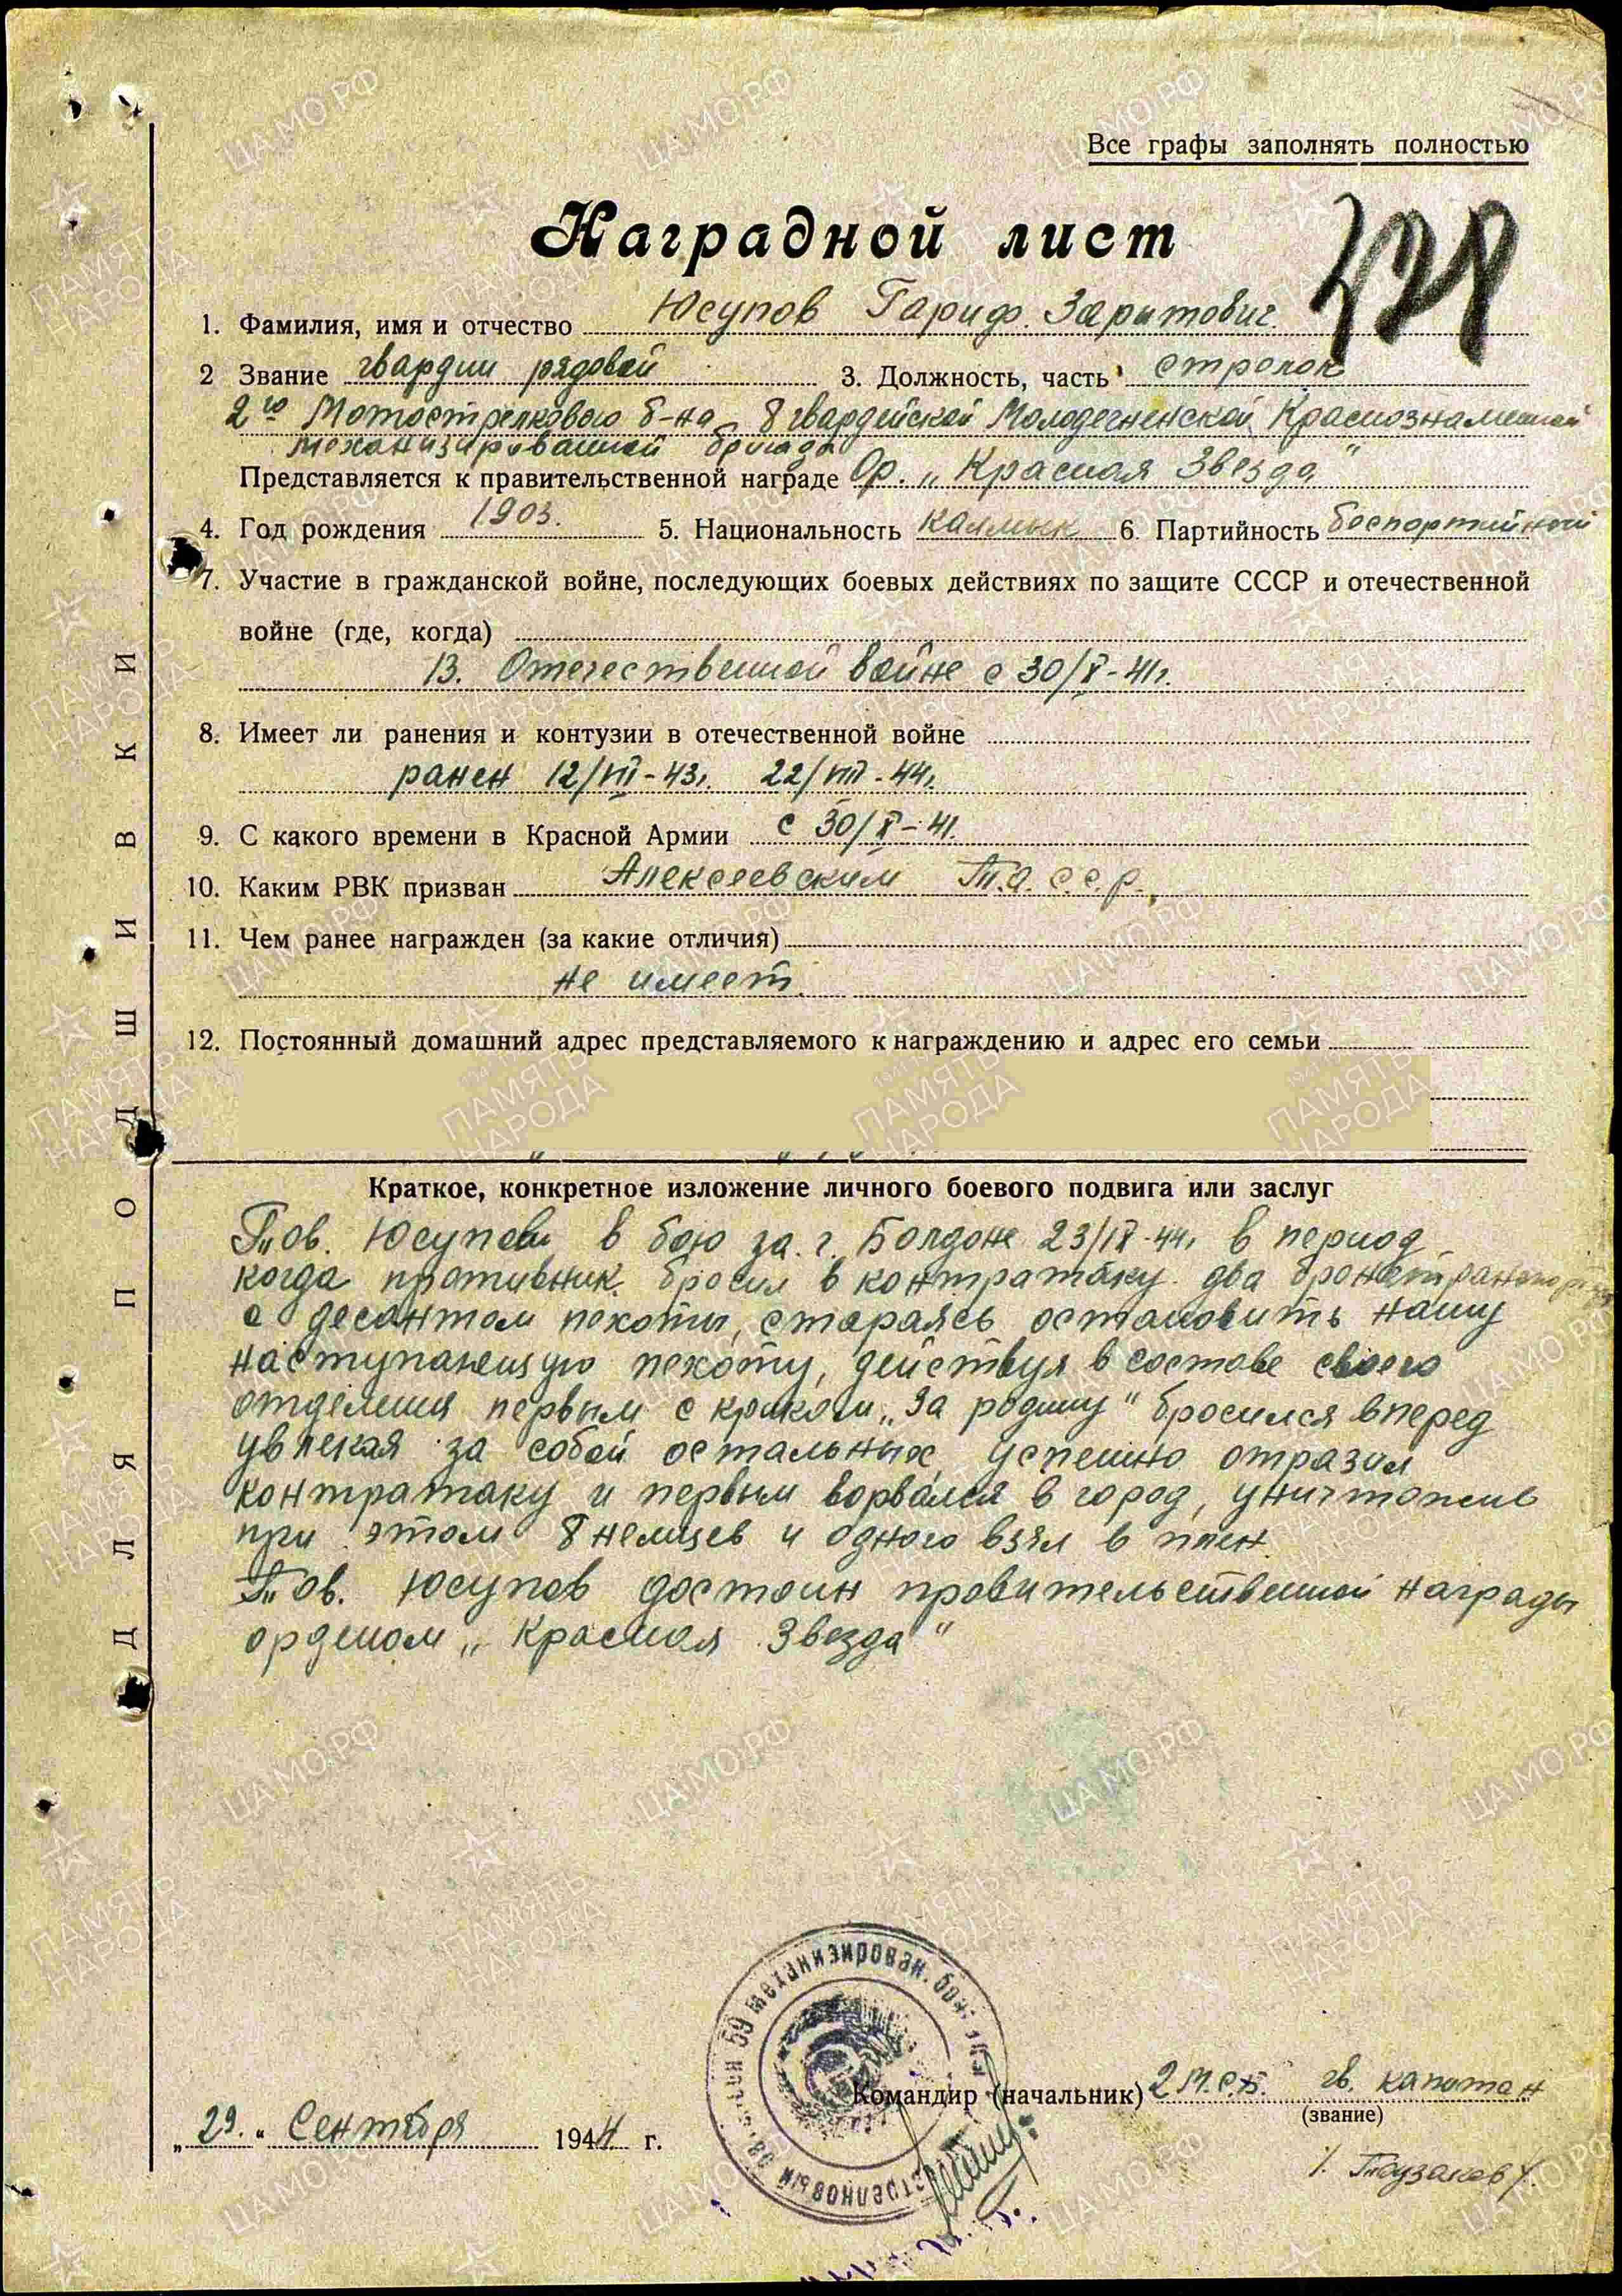 Все графы заполнять полностью
Наградной лист
1. Фамилия, имя и отчество Юсупов Гариф Заритович
2 Звание гвардии рядовой 3. Должность, часть стрелок
2го Мотострелкового б-на 8 гвардейской Молодечненской Краснознаменной
механизированной бригады
Представляется к правительственной награде Ор. „Красная Звезда"
4. Год рождения 1903. 5. Национальность калмык 6. Партийность беспартийный
7. Участие в гражданской войне, последующих боевых действиях по защите СССР и отечественной
войне (где, когда)
В. Отечественной войне с 30/X-41г.
8. Имеет ли ранения и контузии в отечественной войне
ранен 12/VII-43г. 22/VIII-44г.
9. С какого времени в Красной Армии с 30/X-41.
10. Каким РВК призван Алексеевским Т.а.с.с.р.
11. Чем ранее награжден (за какие отличия)
не имеет.
12. Постоянный домашний адрес представляемого к награждению и адрес его семьи
Краткое, конкретное изложение личного боевого подвига или заслуг
Тов. Юсупов в бою за г. Болдоне 23/IX-44г в период
когда противник бросил в контратаку два бронетранспорт
с десантом пехоты, стараясь остановить нашу
наступающую пехоту, действуя в составе своего
отделения первым с криком „За родину" бросился вперед
увлекая за собой остальных, успешно отразил
контратаку и первым ворвался в город, уничтожив
при этом 8 немцев и одного взял в плен.
Тов. Юсупов достоин правительственной награды
орденом „Красная Звезда"
Командир (начальник) 2 м.с.б. гв. капитан
(звание)
„29." Сентября 1944 г.
ДЛЯ ПОДШИВКИ
механизирован.
стрелковый
ЦАМО.РФ
ПАМЯТЬ НАРОДА